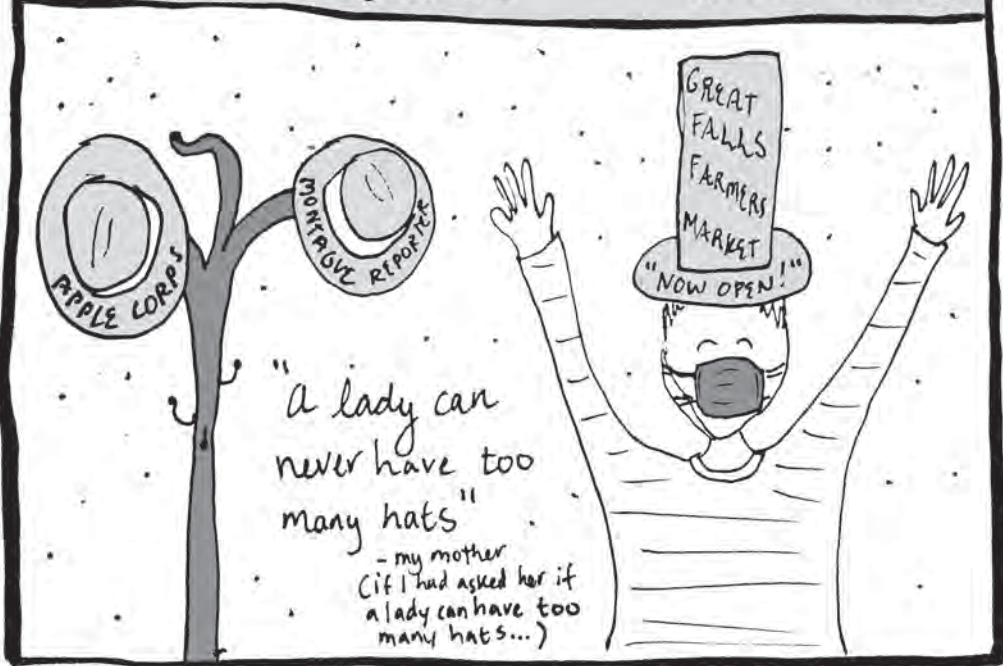 APPLE CORPS
MONTAGUE REPORTER
GREAT
FALLS
FARMERS
MARKET
"NOW OPEN!"
"A lady can
never have too
many hats"
- my mother
(if I had asked her if
a lady can have too
many hats...)